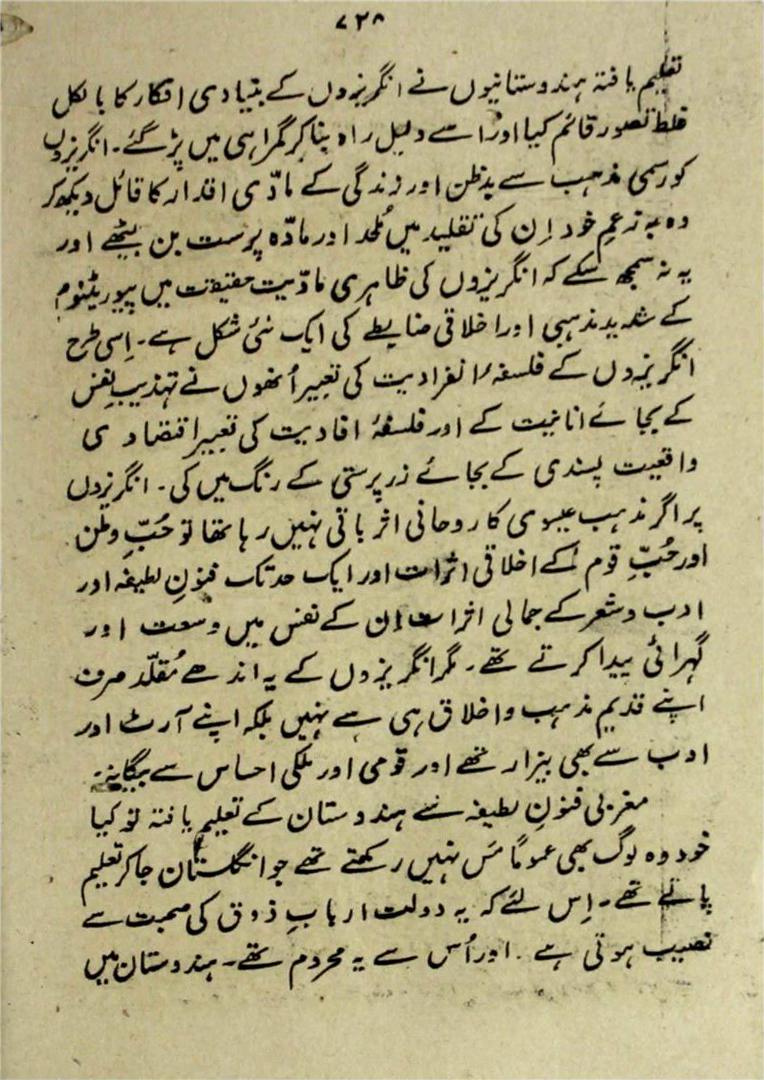 ۷۲۸
تعلیم یافتہ ہندوستانیوں نے انگریزوں کے بنیادی افکار کا بالکل
غلط تصور قائم کیا اور اسے دلیل راہ بنا کر گمراہی میں پڑ گئے۔ انگریزوں
کو رسمی مذہب سے بدظن اور زندگی کے مادّی اقدار کا قائل دیکھ کر
وہ بہ زعمِ خود اِن کی تقلید میں مُلحد اور مادّہ پرست بن بیٹھے اور
یہ نہ سمجھ سکے کہ انگریزوں کی ظاہری مادّیت حقیقت میں پیوریٹنزم
کے شدید مذہبی اور اخلاقی ضابطے کی ایک نئی شکل ہے۔ اِسی طرح
انگریزوں کے فلسفۂ انفرادیت کی تعبیر اُنھوں نے تہذیبِ نفس
کے بجائے انانیت کے اور فلسفۂ افادیت کی تعبیر اقتصادی
واقعیت پسندی کے بجائے زرپرستی کے رنگ میں کی۔ انگریزوں
پر اگر مذہب عیسوی کا روحانی اثر باقی نہیں رہا تھا تو حُبِّ وطن
اور حُبِّ قوم کے اخلاقی اثرات اور ایک حد تک فنونِ لطیفہ اور
ادب و شعر کے جمالی اثرات اِن کے نفس میں وسعت اور
گہرائی پیدا کرتے تھے۔ مگر انگریزوں کے یہ اندھے مُقلّد صرف
اپنے قدیم مذہب و اخلاق ہی سے نہیں بلکہ اپنے آرٹ اور
ادب سے بھی بیزار تھے اور قومی اور ملکی احساس سے بیگانہ۔
مغربی فنونِ لطیفہ سے ہندوستان کے تعلیم یافتہ تو کیا
خود وہ لوگ بھی عموماً مَس نہیں رکھتے تھے جو انگلستان جا کر تعلیم
پاتے تھے۔ اِس لئے کہ یہ دولت اربابِ ذوق کی صحبت سے
نصیب ہوتی ہے۔ اور اُس سے یہ محروم تھے۔ ہندوستان میں